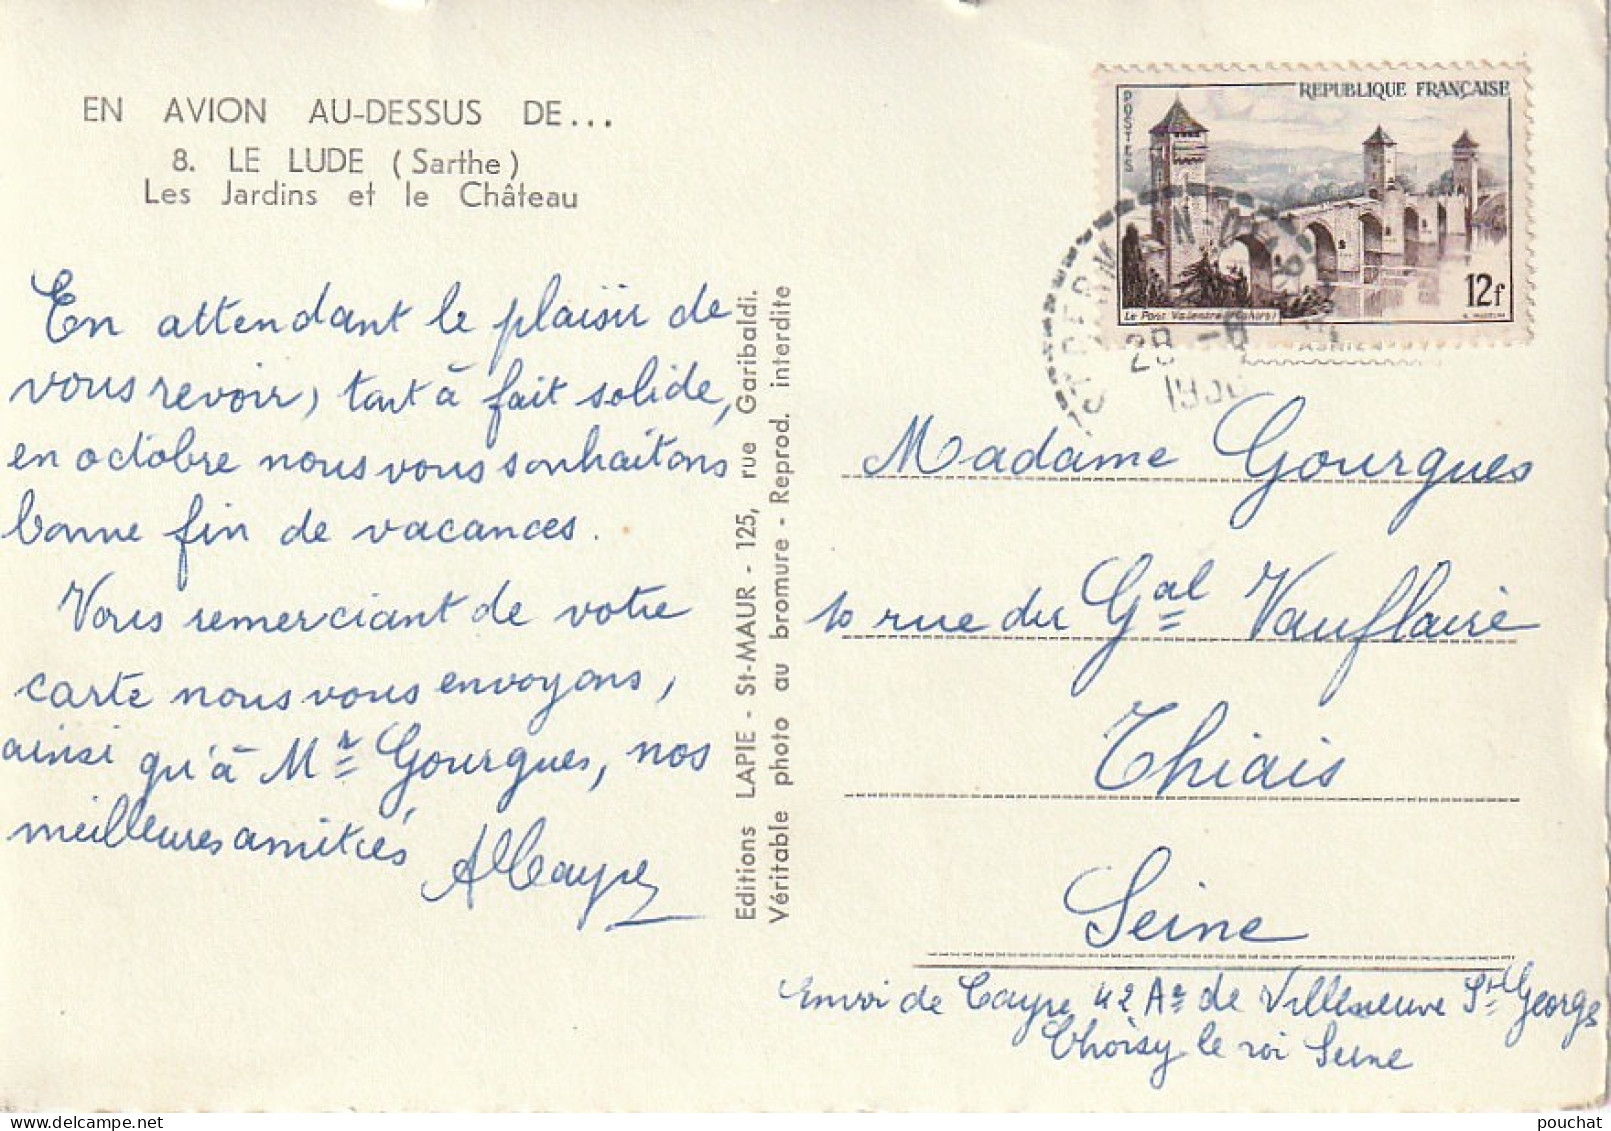 EN AVION AU-DESSUS DE...
8. LE LUDE (Sarthe)
Les Jardins et le Château
En attendant le plaisir de
vous revoir, tout à fait solide,
en octobre nous vous souhaitons
bonne fin de vacances.
Vous remerciant de votre
carte nous vous envoyons,
ainsi qu'à Mr Gourgues, nos
meilleures amitiés
Editions LAPIE - St-MAUR - 125, rue Garibaldi.
Véritable photo au bromure - Reprod. interdite
REPUBLIQUE FRANÇAISE
POSTES
12f
Le Pont Valentré (Cahors)
28 -8
Madame Gourgues
10 rue du Gal Vauflaire
Thiais
Seine
Envoi de Cayre 42 Ae de Villeneuve St Georges
Choisy le roi Seine
pouchat